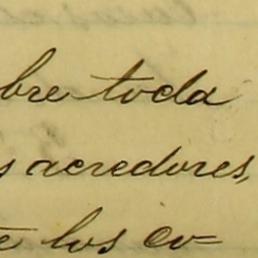 bre toda
s acredores,
e los co-